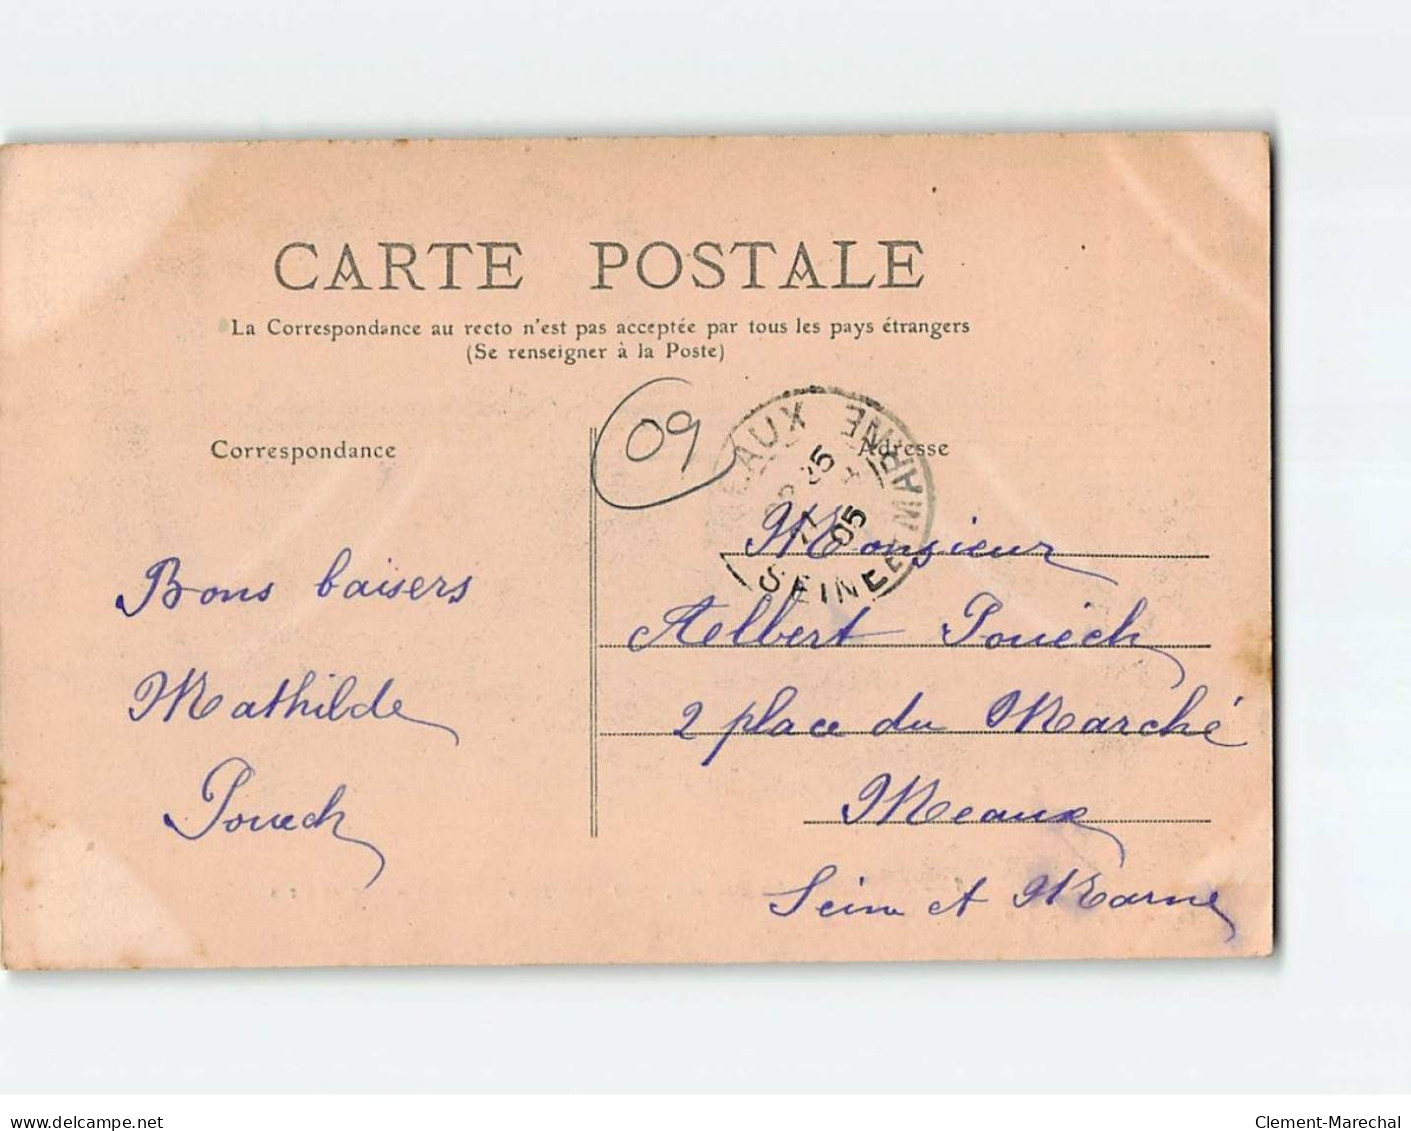 CARTE POSTALE
La Correspondance au recto n'est pas acceptée par tous les pays étrangers
(Se renseigner à la Poste)
09
MEAUX
SEINE ET MARNE
05
Correspondance
Adresse
Bons baisers
Mathilde
Pouech
Monsieur
Albert Pouéch
2 place du Marché
Meaux
Seine et Marne
www.delcampe.net
Clement-Marechal